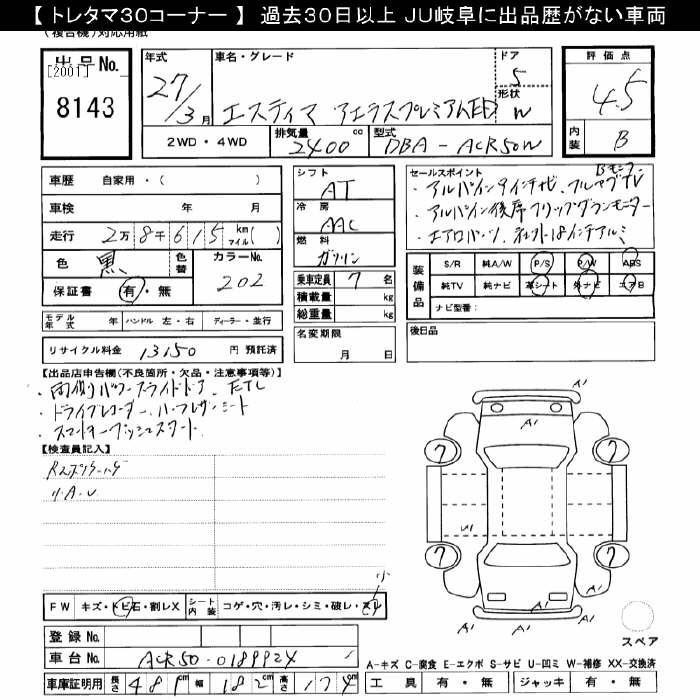 【 トレタマ30コーナー 】 過去30日以上 JU岐阜に出品歴がない車両
(複合機)対応用紙
出品No.
[2001]
8143
年式
27/3月
車名・グレード
エスティマ アエラスプレミアムED
ドア
5
形状
W
評価点
4.5
内装
B
2WD・4WD
排気量 2400 cc
型式 DBA-ACR50W
車歴 自家用・( )
車検 年 月
走行 2万8千615 km マイル( )
色 黒
色替
カラーNo. 202
保証書 有・無
シフト
AT
冷房
AAC
燃料
ガソリン
乗車定員 7 名
積載量 kg
総重量 kg
セールスポイント
・アルパイン9インチナビ、フルセグTV
Bモニター
・アルパイン後席フリップダウンモニター
・エアロパーツ、社外18インチアルミ
装備品
S/R 純A/W P/S P/W ABS
純TV 純ナビ 革シート 外ナビ エアB
ナビ型番:
モデル年式 年 ハンドル 左・右 ディーラー・並行
リサイクル料金 13150 円 預託済
名変期限
月 日
後日品
【出品店申告欄(不良箇所・欠品・注意事項等)】
・両側パワースライドドア、ETC
・ドライブレコーダー、ハーフレザーシート
・スマートキープッシュスタート
【検査員記入】
リ.A.U
A1
A1
7
7
U1
7
7
A1
A1
A1
A1
スペア
FW キズ・トビ石・割レX シート内装 コゲ・穴・汚レ・シミ・破レ・スレ
小
登録No.
車台No. ACR50-0189924
車庫証明用 長さ 481cm 幅 182cm 高さ 174cm
A-キズ C-腐食 E-エクボ S-サビ U-凹ミ W-補修 XX-交換済
工具 有・無 ジャッキ 有・無